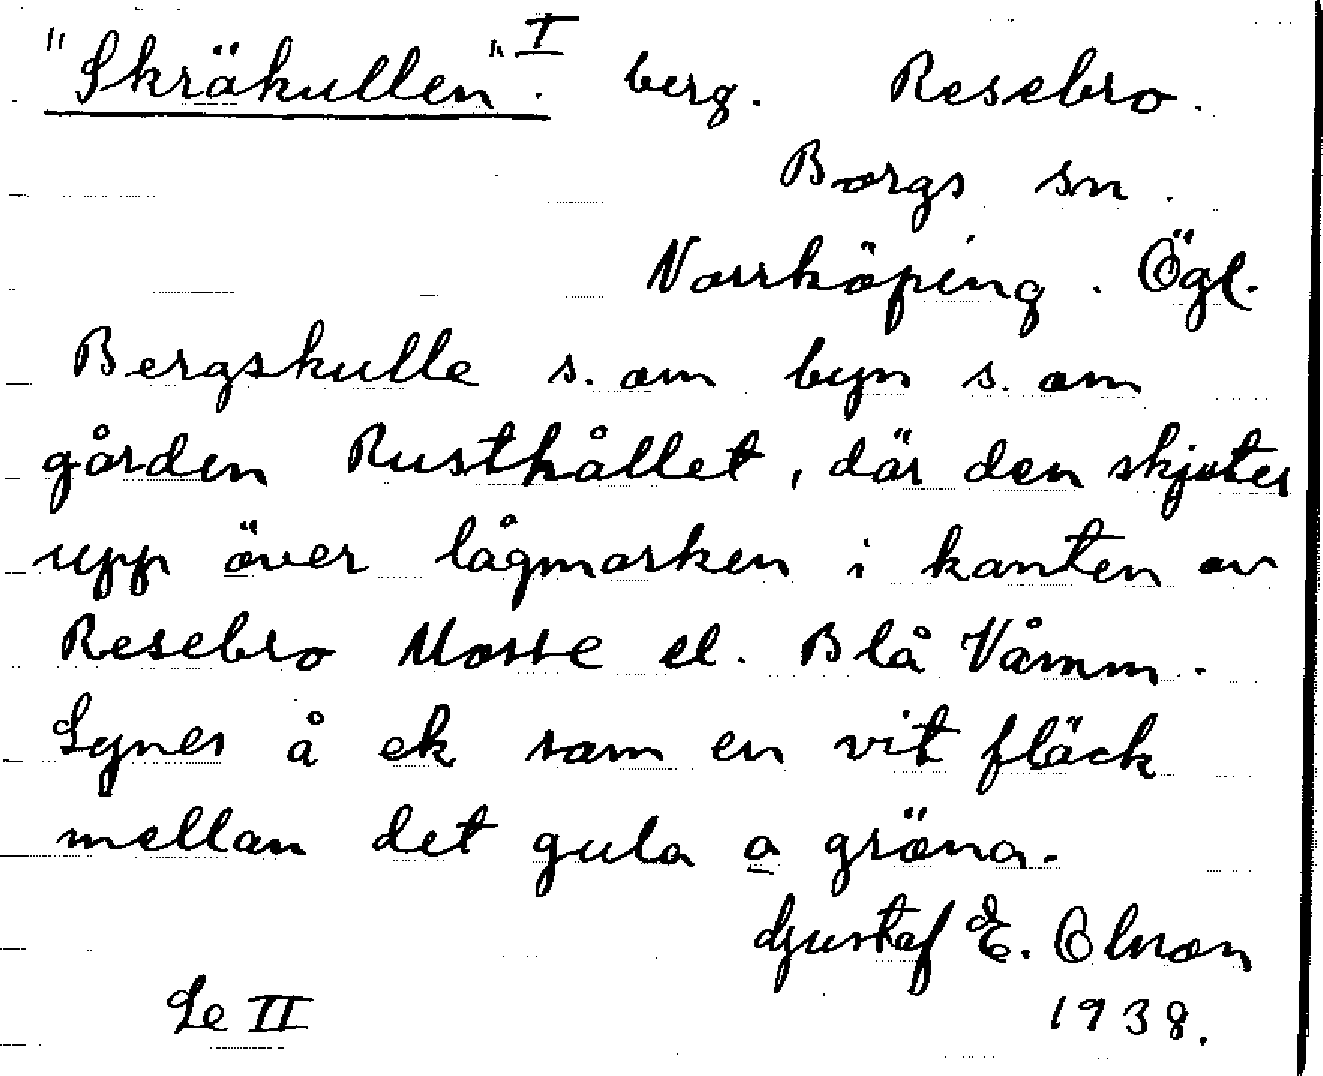 "Skräkullen". I berg. Resebro.
Borgs sn.
Norrköping. Ögl.
Bergskulle s. om byn s. om
gården Rusthållet, där den skjuter
upp över lågmarken i kanten av
Resebro Mosse el. Blå Våmm.
Synes å ek som en vit fläck
mellan det gula o gröna.
Gustaf E. Olsson
Se II 1938.